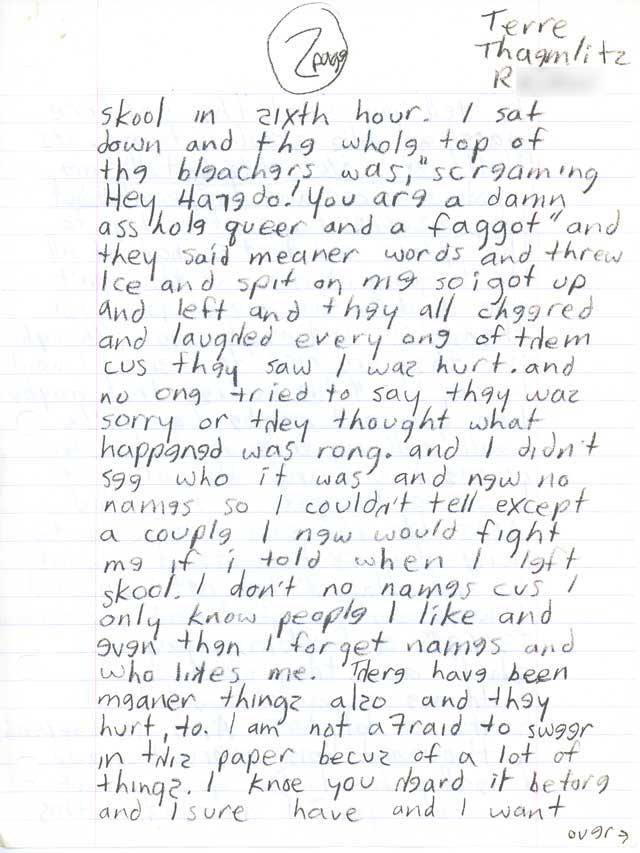 2 page
Terre
Thaemlitz
R
skool in sixth hour. I sat
down and the whole top of
the bleachers was, "screaming
Hey Haredo! You are a damn
ass hole queer and a faggot" and
they said meaner words and threw
Ice and spit on me so i got up
and left and they all cheered
and laughed every one of them
cus they saw I was hurt. and
no one tried to say they was
sorry or they thought what
happened was rong. and I didn't
see who it was and new no
names so I couldn't tell except
a couple I new would fight
me if i told when I left
skool. I don't no names cus I
only know people I like and
even then I forget names and
who likes me. There have been
meaner things also and they
hurt, to. I am not afraid to sweer
in this paper becus of a lot of
things. I knoe you heard it before
and I sure have and I want
over →